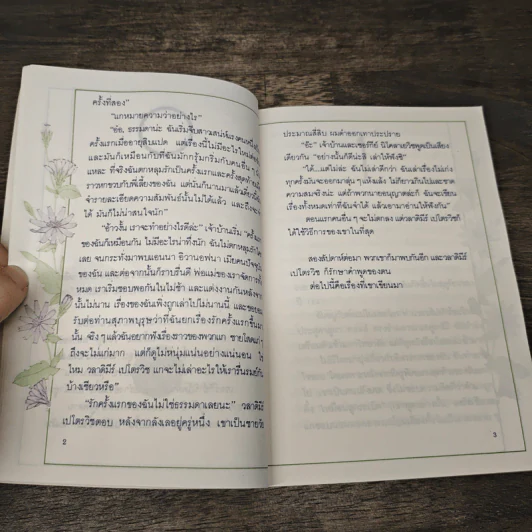 ครั้งที่สอง"
"แกหมายความว่าอย่างไร"
"อ๋อ, ธรรมดาน่ะ ฉันเริ่มจีบสาวเสน่ห์แรงคนหนึ่ง
ครั้งแรกเมื่ออายุสิบแปด แต่เรื่องนี้ไม่มีอะไรใหม่
และมันก็เหมือนกับที่ฉันมักกรุ้มกริ่มกับคนอื่น ๆ
แหละ ที่จริงฉันตกหลุมรักเป็นครั้งแรกและครั้งสุดท้าย
ราวหกขวบกับพี่เลี้ยงของฉัน แต่นั่นก็นานมาแล้ว
จำรายละเอียดความสัมพันธ์นั้นไม่ได้แล้ว และถึงจะจำ
ได้ มันก็ไม่น่าสนใจนัก"
"อ้าวงั้น เราจะทำอย่างไรดีล่ะ" เจ้าบ้านเริ่ม
ของฉันก็เหมือนกัน ไม่มีอะไรน่าทึ่งนัก ฉันไม่ตกหลุมรัก
เลย จนกระทั่งมาพบแอนนา อิวานอฟนา เมียคนปัจจุบัน
ของฉัน และต่อจากนั้นก็ราบรื่นดี พ่อแม่ของเราจัดการ
หมด เราเริ่มชอบพอกันในไม่ช้า และแต่งงานกันหลังจาก
นั้นไม่นาน เรื่องของฉันเพิ่งถูกเล่าไปไม่นานนี้ และขอยอม
รับต่อท่านสุภาพบุรุษว่าที่ฉันยกเรื่องรักครั้งแรกขึ้นมา
นั้น จริง ๆ แล้วฉันอยากฟังเรื่องราวของพวกแก ชายโสด
ถึงจะไม่แก่มาก แต่ก็ดูไม่หนุ่มแน่นอย่างแน่นอน
ไหม วลาดิมีร์ เปโตรวิช แกจะไม่เล่าอะไรให้เรารื่นรมย์กัน
บ้างเชียวหรือ"
"รักครั้งแรกของฉันไม่ใช่ธรรมดาเลยนะ" วลาดิมีร์
เปโตรวิชตอบ หลังจากลังเลอยู่ครู่หนึ่ง เขาเป็นชายวัย
2
ประมาณสี่สิบ ผมดำออกเทาประปราย
"จ๊ะ" เจ้าบ้านและเซอร์กีย์ นิโคลาเยวิชพูดเป็นเสียง
เดียวกัน "อย่างนั้นก็ดีน่ะสิ เล่าให้ฟังซิ"
"ได้...แต่ไม่ล่ะ ฉันไม่เล่าดีกว่า ฉันเล่าเรื่องไม่เก่ง
ทุกครั้งมันจะออกมาลุ่น ๆ แห้งแล้ง ไม่ก็ยาวเกินไปและขาด
ความสมจริงน่ะ แต่ถ้าพวกนายอนุญาตล่ะก็ ฉันจะเขียน
เรื่องทั้งหมดเท่าที่ฉันจำได้ แล้วเอามาอ่านให้ฟังกัน"
ตอนแรกคนอื่น ๆ จะไม่ตกลง แต่วลาดิมีร์ เปโตรวิชก็
ได้ใช้วิธีการของเขาในที่สุด
สองสัปดาห์ต่อมา พวกเขาก็มาพบกันอีก และวลาดิมีร์
เปโตรวิช ก็รักษาคำพูดของตน
ต่อไปนี้คือเรื่องที่เขาเขียนมา
3